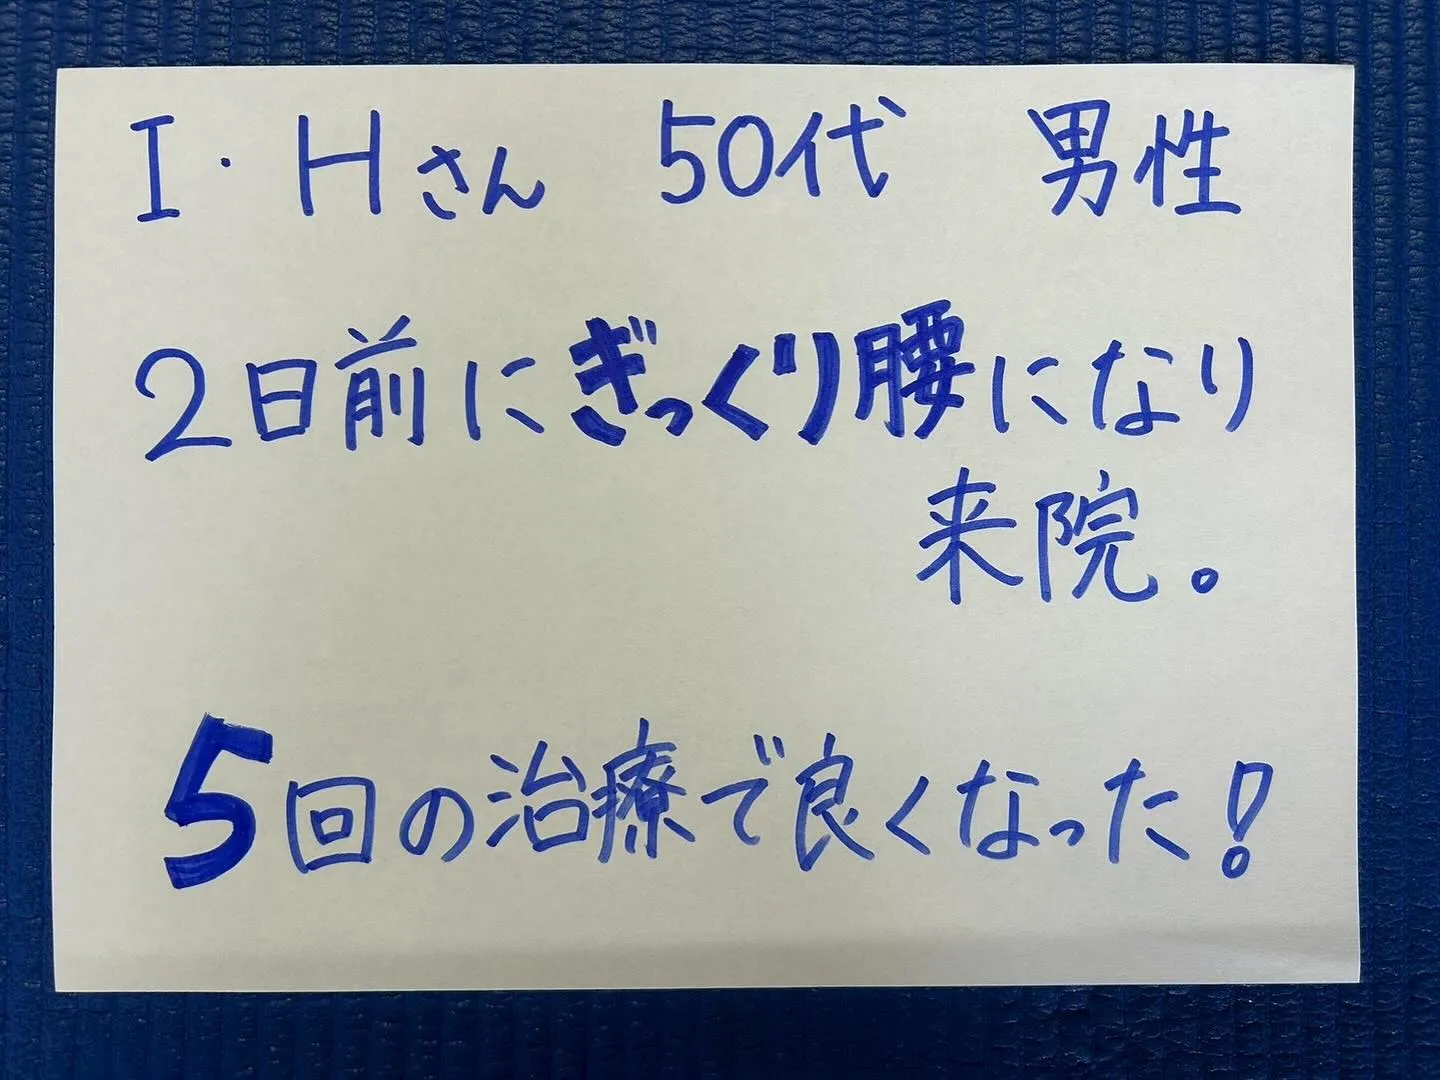 I・Hさん 50代 男性
2日前にぎっくり腰になり
来院。
5回の治療で良くなった!